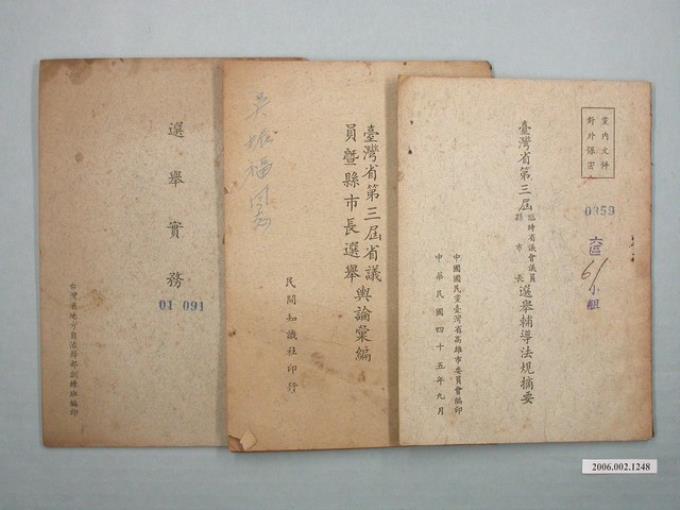 黨內文件
對外保密
0359
六區
61
小組
臺灣省第三屆臨時省議會議員縣市長選舉輔導法規摘要
中國國民黨臺灣省高雄市委員會編印
中華民國四十五年九月
臺灣省第三屆省議
員暨縣市長選舉輿論彙編
民間知識社印發
選舉實務
01 091
台灣省地方自治幹部訓練班編印
2006.002.1248